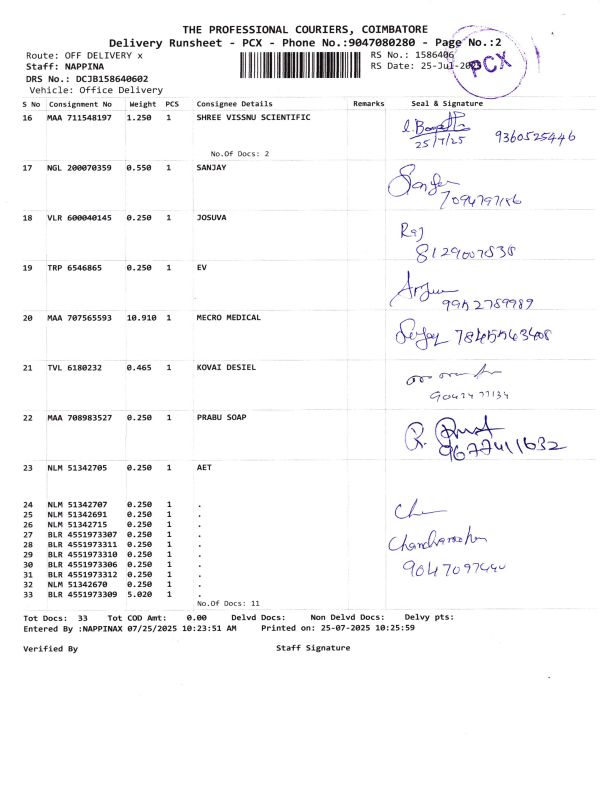 THE PROFESSIONAL COURIERS, COIMBATORE
Delivery Runsheet - PCX - Phone No.:9047080280 - Page No.:2
Route: OFF DELIVERY x
RS No.: 1586406
Staff: NAPPINA
RS Date: 25-Jul-2025
PCX
DRS No.: DCJB158640602
Vehicle: Office Delivery
S No Consignment No Weight PCS Consignee Details Remarks Seal & Signature
16 MAA 711548197 1.250 1 SHREE VISSNU SCIENTIFIC
25/7/25 9360525446
No.Of Docs: 2
17 NGL 200070359 0.550 1 SANJAY
7094797186
18 VLR 600040145 0.250 1 JOSUVA
Raj
8129007838
19 TRP 6546865 0.250 1 EV
Arjun
9952789989
20 MAA 707565593 10.910 1 MECRO MEDICAL
21 TVL 6180232 0.465 1 KOVAI DESIEL
22 MAA 708983527 0.250 1 PRABU SOAP
9677411632
23 NLM 51342705 0.250 1 AET
24 NLM 51342707 0.250 1 .
25 NLM 51342691 0.250 1 .
26 NLM 51342715 0.250 1 .
27 BLR 4551973307 0.250 1 .
28 BLR 4551973311 0.250 1 .
29 BLR 4551973310 0.250 1 .
30 BLR 4551973306 0.250 1 .
31 BLR 4551973312 0.250 1 .
32 NLM 51342670 0.250 1 .
33 BLR 4551973309 5.020 1 .
No.Of Docs: 11
Tot Docs: 33 Tot COD Amt: 0.00 Delvd Docs: Non Delvd Docs: Delvy pts:
Entered By :NAPPINAX 07/25/2025 10:23:51 AM Printed on: 25-07-2025 10:25:59
Verified By Staff Signature